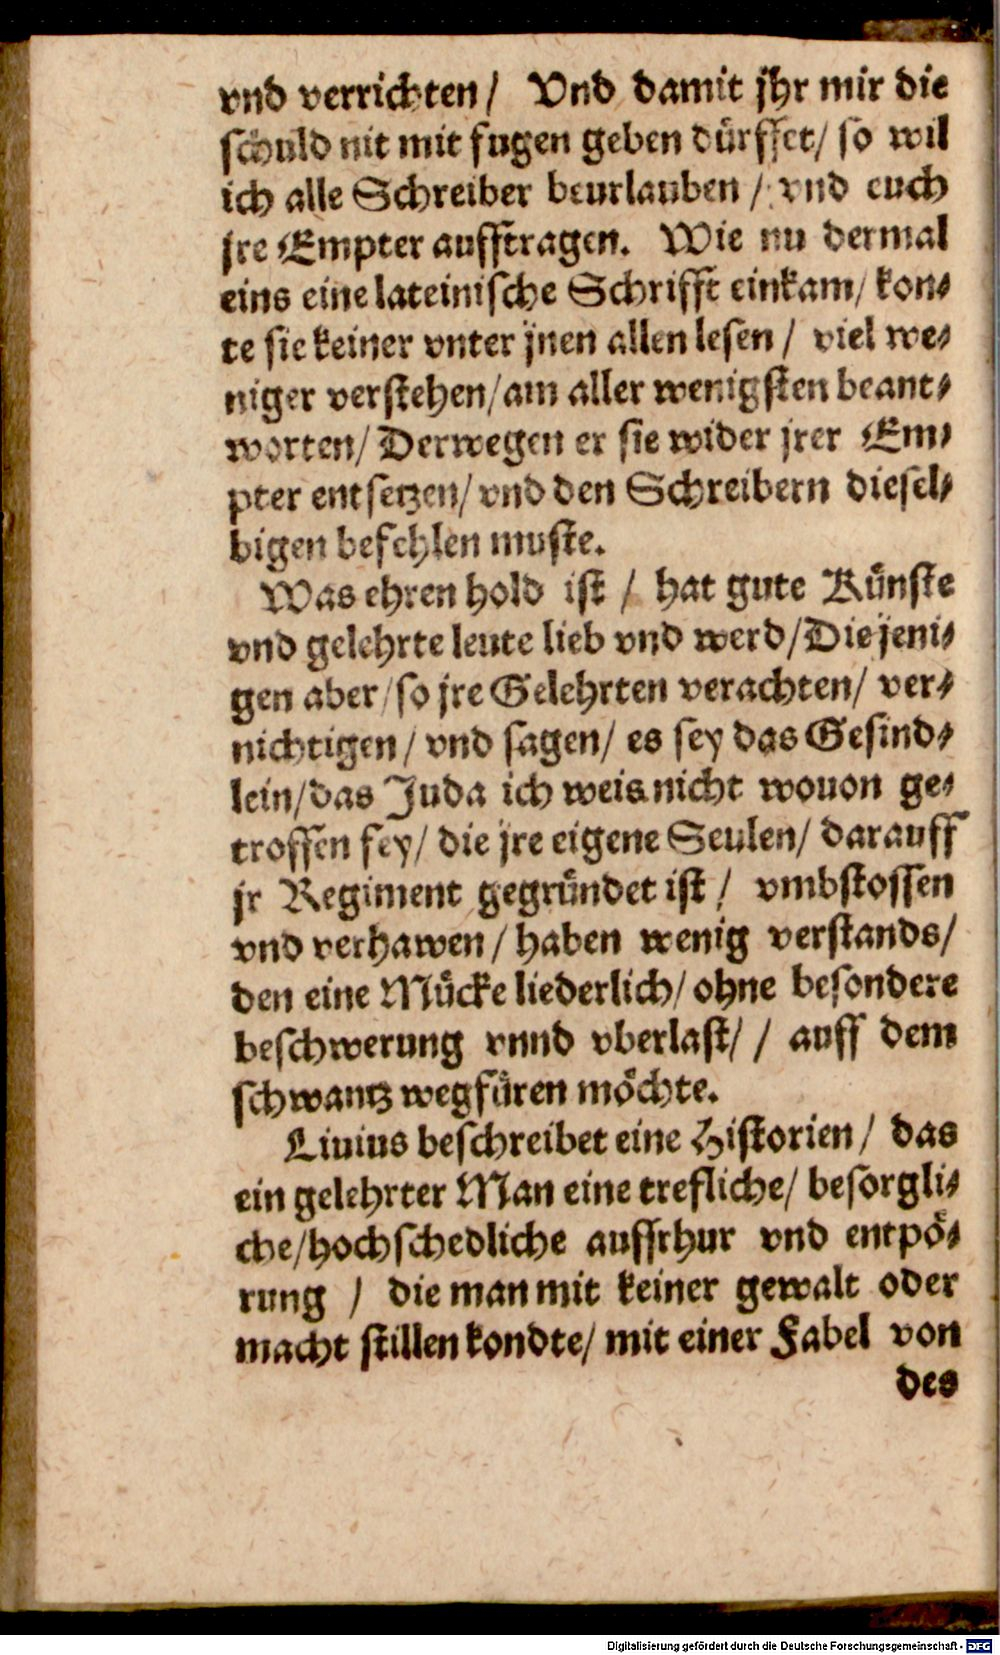 vnd verrichten/ Vnd damit jhr mir die
schuld nit mit fugen geben dürffet/ so wil
ich alle Schreiber beurlauben / vnd euch
jre Empter aufftragen. Wie nu dermal
eins eine lateinische Schrifft einkam/ kon⸗
te sie keiner vnter jnen allen lesen / viel we⸗
niger verstehen/ am aller wenigsten beant⸗
worten/ Derwegen er sie wider jrer Em⸗
pter entsetzen/ vnd den Schreibern diesel⸗
bigen befehlen muste.
Was ehren hold ist / hat gute Künste
vnd gelehrte leute lieb vnd werd/ Die jeni⸗
gen aber/ so jre Gelehrten verachten/ ver⸗
nichtigen/ vnd sagen/ es sey das Gesind⸗
lein/ das Juda ich weis nicht wouon ge⸗
troffen sey/ die jre eigene Seulen/ darauff
jr Regiment gegründet ist / vmbstossen
vnd verhawen/ haben wenig verstands/
den eine Mücke liederlich/ ohne besondere
beschwerung vnnd vberlast/ / auff dem
schwantz wegfüren möchte.
Liuius beschreibet eine Historien/ das
ein gelehrter Man eine trefliche/ besorgli⸗
che/ hochschedliche auffrhur vnd entpö⸗
rung / die man mit keiner gewalt oder
macht stillen kondte/ mit einer Fabel von
des
Digitalisierung gefördert durch die Deutsche Forschungsgemeinschaft - DFG